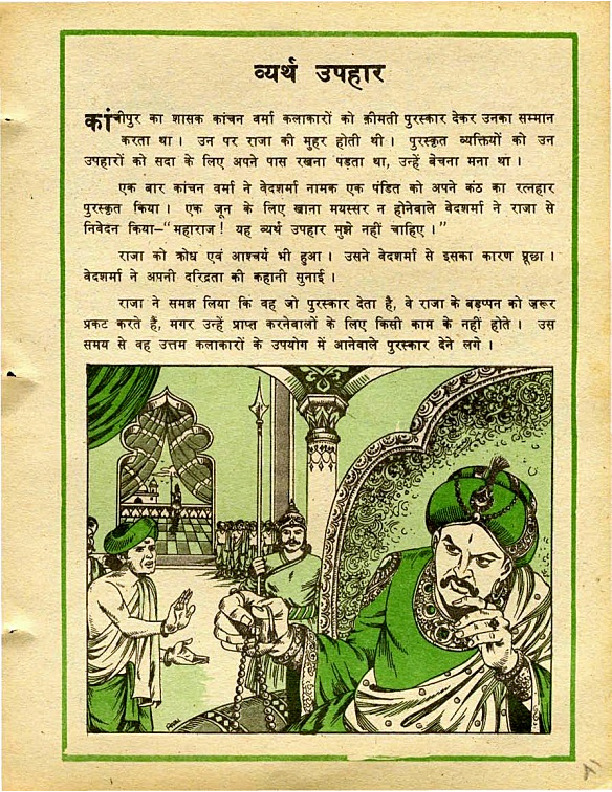 व्यर्थ उपहार
कांचीपुर का शासक कांचन वर्मा कलाकारों को क़ीमती पुरस्कार देकर उनका सम्मान
करता था। उन पर राजा की मुहर होती थी। पुरस्कृत व्यक्तियों को उन
उपहारों को सदा के लिए अपने पास रखना पड़ता था, उन्हें बेचना मना था।
एक बार कांचन वर्मा ने वेदशर्मा नामक एक पंडित को अपने कंठ का रत्नहार
पुरस्कृत किया। एक जून के लिए खाना मयस्सर न होनेवाले वेदशर्मा ने राजा से
निवेदन किया–"महाराज! यह व्यर्थ उपहार मुझे नहीं चाहिए।"
राजा को क्रोध एवं आश्चर्य भी हुआ। उसने वेदशर्मा से इसका कारण पूछा।
वेदशर्मा ने अपनी दरिद्रता की कहानी सुनाई।
राजा ने समझ लिया कि वह जो पुरस्कार देता है, वे राजा के बड़प्पन को ज़रूर
प्रकट करते हैं, मगर उन्हें प्राप्त करनेवालों के लिए किसी काम के नहीं होते। उस
समय से वह उत्तम कलाकारों के उपयोग में आनेवाले पुरस्कार देने लगे।